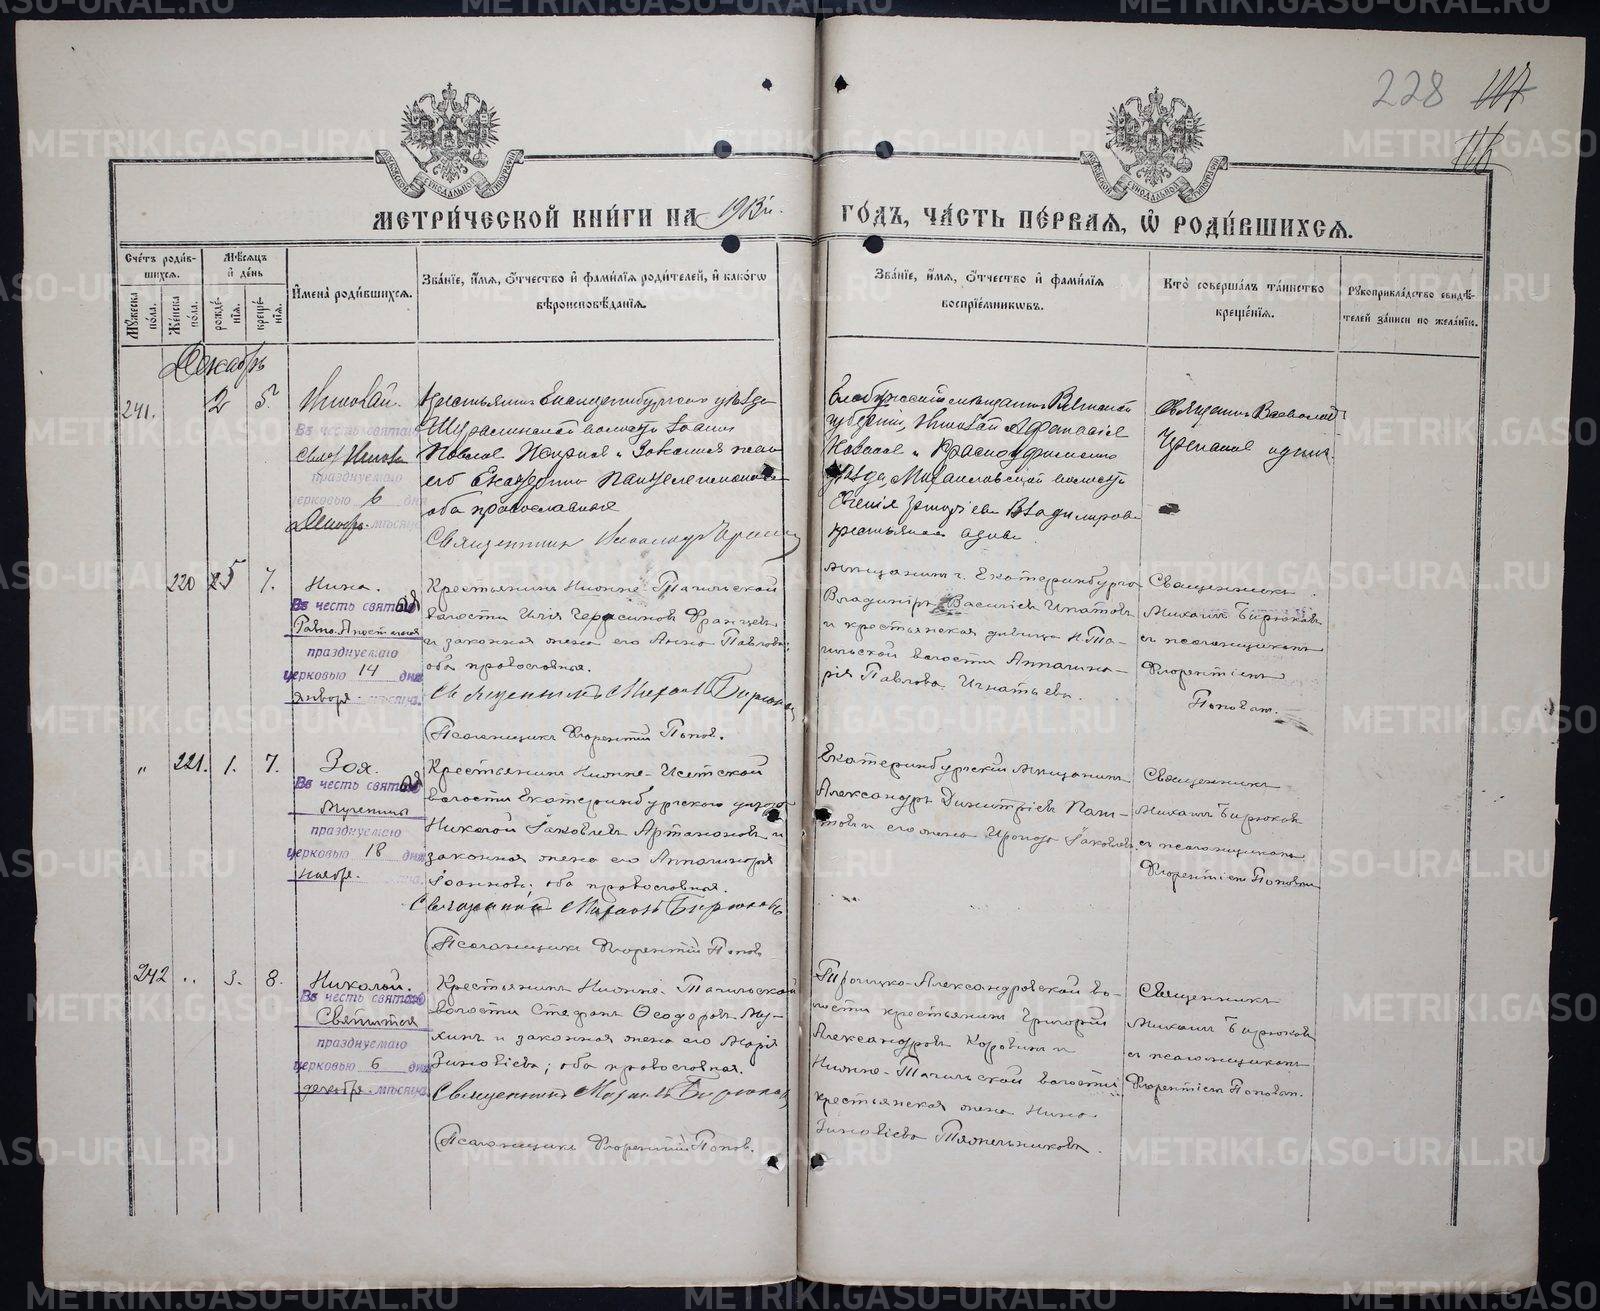 228 117
116
МОСКОВСКОЙ СѴНОДАЛЬНОЙ ТИПОГРАФІИ
МОСКОВСКОЙ СѴНОДАЛЬНОЙ ТИПОГРАФІИ
МЕТРИ́ЧЕСКОЙ КНИ́ГИ НА 1913 й. ГО́ДЪ, ЧА́СТЬ ПЕ́РВАѦ, Ѡ҆ РОДИ́ВШИХСѦ.
Сче́тъ роди́вшихсѧ.
Мꙋ́жеска по́ла.
Же́нска по́ла.
Мѣ́сѧцъ и҆ де́нь
рожде́нїѧ.
креще́нїѧ.
И҆мена̀ роди́вшихсѧ.
Зва́нїе, и҆́мѧ, ѻ҆́тчество и҆ фами́лїѧ роди́телей, и҆ како́гѡ
вѣроисповѣ́данїѧ.
Зва́нїе, и҆́мѧ, ѻ҆́тчество и҆ фами́лїѧ
воспрїе́мникѡвъ.
Кто̀ соверша́лъ та́инство
креще́нїѧ.
Рꙋкоприкла́дство свидѣ́-
телей за́писи по жела́нїю.
Декабрь
241. 2 5. Николай.
Въ честь святаго
Свят. Никол
празднуемаго
церковью 6 дня
Декабр. мѣсяца
Крестьянинъ Екатеринбургскаго уѣзда
волости Іоаннъ
Павлов и Законная жена
его Екатерина
оба православные
Священник
Николай Афанасіев
и Красноуфимскаго
уѣзда, Михайловской волости
Евгенія Григоріева Владимірова
крестьянская вдова
Священник Всеволод
220 25 7. Нина.
Въ честь святой
Равно-Апостольной
празднуемаго
церковью 14 дня
Января мѣсяца.
Крестьянинъ Нижне-Тагильской
волости Илія Герасимовъ Францевъ
и законная жена его Анна Павлова;
оба православные.
Священникъ Михаилъ Бирюковъ
Псаломщикъ Флорентій Попов.
Мѣщанинъ г. Екатеринбурга
Владиміръ Василіевъ Ипатовъ
и крестьянская дѣвица Н.-Та-
гильской волости Апполина-
рія Павлова Игнатьева.
Священникъ
Михаилъ Бирюковъ
съ псаломщикомъ
Флорентіемъ
Поповым.
„ 221. 1. 7. Зоя.
Въ честь святой
Мученицы
празднуемаго
церковью 18 дня
Ноябр. мѣсяца.
Крестьянинъ Нижне-Исетской
волости Екатеринбургскаго уѣзда
Николай Іаковлевъ Артамоновъ и
законная жена его Апполинарія
Іоаннова; оба православные.
Священникъ Михаилъ Бирюковъ
Псаломщикъ Флорентій Попов
Екатеринбургскій мѣщанинъ
Александръ Димитріевъ Пани-
товъ и его жена Ираида Іаковлева.
Священникъ
Михаилъ Бирюковъ
съ псаломщикомъ
Флорентіем Поповым
242 .. 3. 8. Николай.
Въ честь святаго
Святителя
празднуемаго
церковью 6 дня
декабр. мѣсяца.
Крестьянинъ Нижне-Тагильской
волости Стефанъ Ѳеодоровъ Му-
хинъ и законная жена его Марія
Зиновіева; оба православные.
Священникъ Михаилъ Бирюковъ
Псаломщикъ Флорентій Попов.
Троицко-Александровской во-
лости крестьянинъ Григорій
Александровъ Коровинъ и
Нижне-Тагильской волости
крестьянская жена Нина
Зиновіева Тяжельникова.
Священникъ
Михаилъ Бирюковъ
съ псаломщикомъ
Флорентіем Поповым.
METRIKI.GASO-URAL.RU